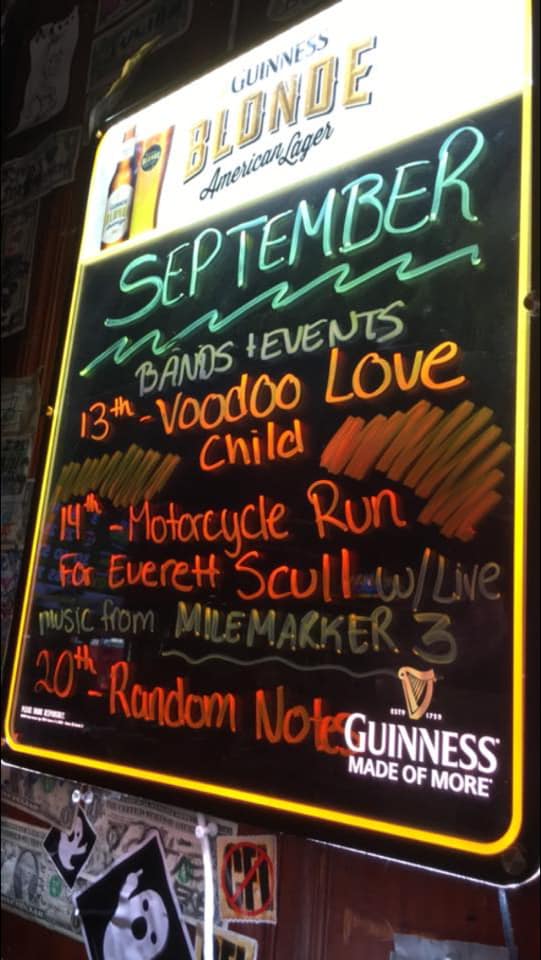 GUINNESS
BLONDE
American Lager
SEPTEMBER
BANDS + EVENTS
13th - Voodoo Love
Child
14th - Motorcycle Run
For Everett Scull w/Live
music from MILEMARKER 3
20th - Random Notes
ESTD 1759
GUINNESS
MADE OF MORE